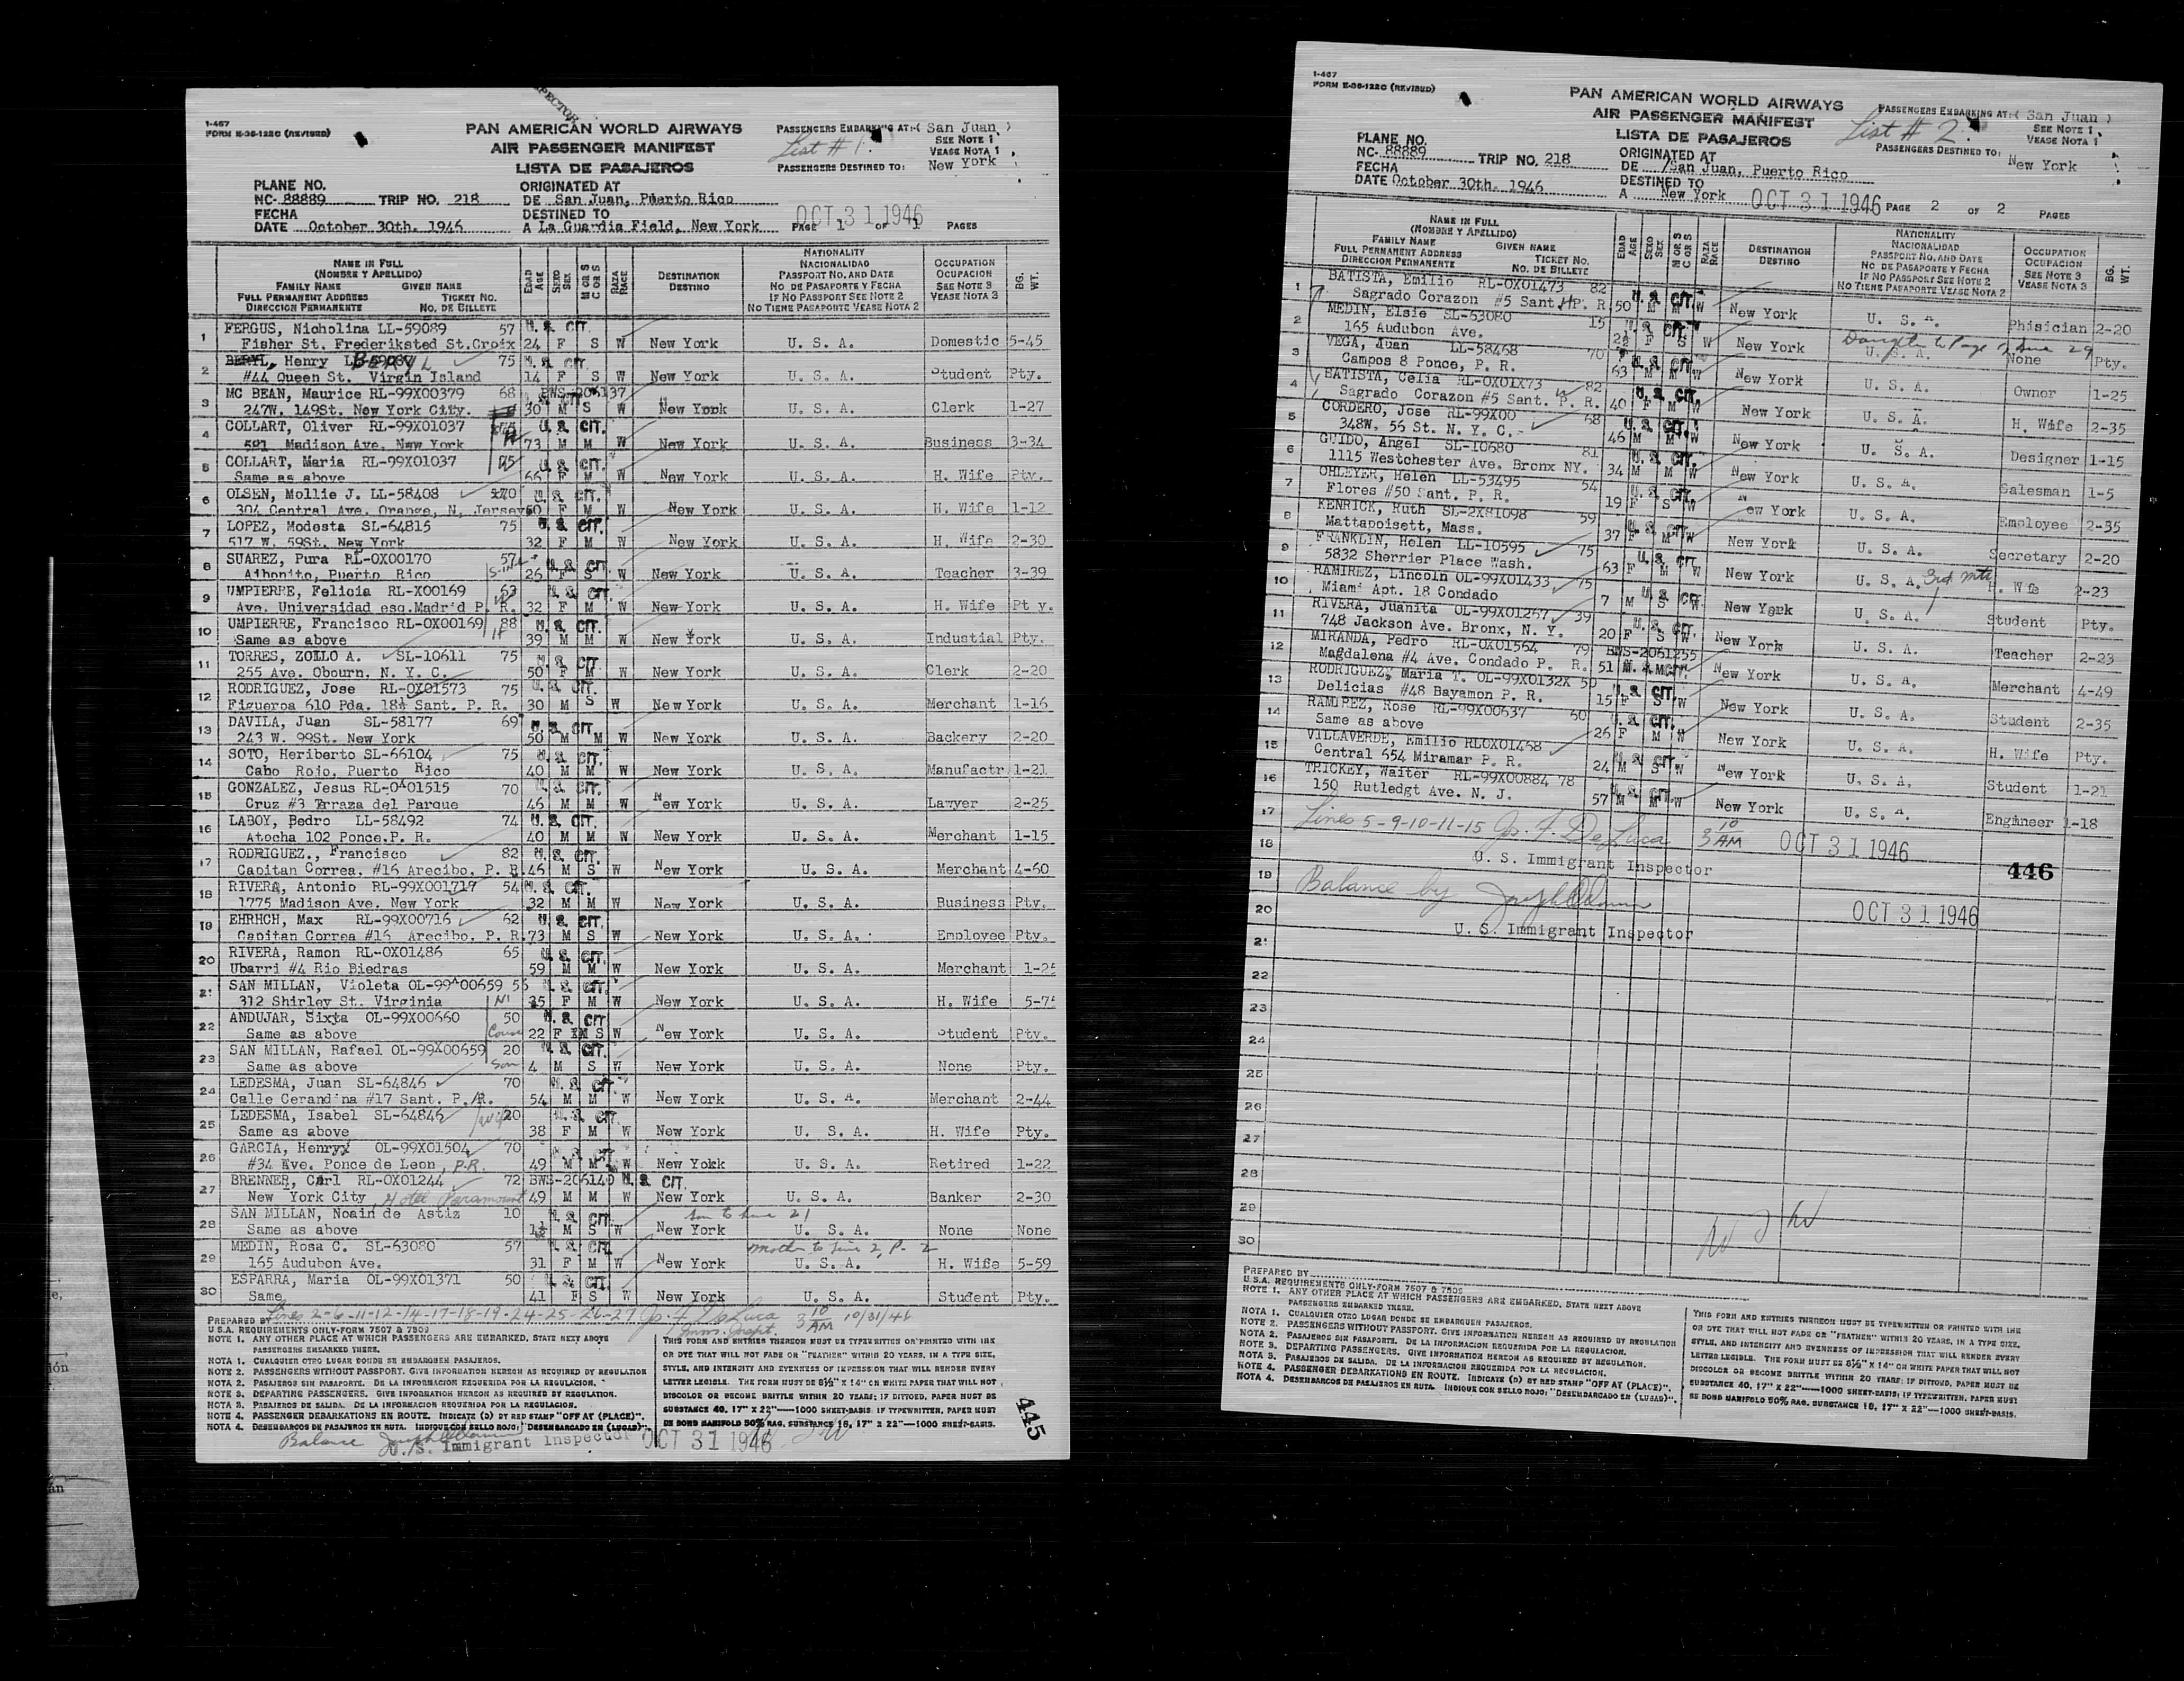 1-467
FORM E-36-122C (REVISED)
PAN AMERICAN WORLD AIRWAYS
AIR PASSENGER MANIFEST
LISTA DE PASAJEROS
PASSENGERS EMBARKING AT: ( San Juan )
SEE NOTE 1
VEASE NOTA 1
List # 1
PASSENGERS DESTINED TO: New York
PLANE NO.
NC- 88889 TRIP NO. 218
FECHA
DATE October 30th. 1946
ORIGINATED AT
DE San Juan, Puerto Rico
DESTINED TO
A La Guardia Field, New York
OCT 31 1946
PAGE 1 OF 1 PAGES
NAME IN FULL
(NOMBRE Y APELLIDO)
FAMILY NAME GIVEN NAME
FULL PERMANENT ADDRESS TICKET NO.
DIRECCION PERMANENTE NO. DE BILLETE
EDAD AGE
SEXO SEX
M OR S
C OR S
RAZA RACE
DESTINATION
DESTINO
NATIONALITY
NACIONALIDAD
PASSPORT NO. AND DATE
NO DE PASAPORTE Y FECHA
IF NO PASSPORT SEE NOTE 2
NO TIENE PASAPORTE VEASE NOTA 2
OCCUPATION
OCUPACION
SEE NOTE 3
VEASE NOTA 3
BG. WT.
1 FERGUS, Nicholina LL-59089 57 U. S. CIT.
Fisher St. Frederiksted St.Croix 24 F S W New York U. S. A. Domestic 5-45
2 BERYL, Henry BERYL 75 U. S. CIT.
#44 Queen St. Virgin Island 14 F S W New York U. S. A. Student Pty.
3 MC BEAN, Maurice RL-99X00379 68 BWS-206137
247W. 149St. New York City. 30 M S W New York U. S. A. Clerk 1-27
4 COLLART, Oliver RL-99X01037 U. S. CIT.
521 Madison Ave. New York 73 M M W New York U. S. A. Business 3-34
5 COLLART, Maria RL-99X01037 U. S. CIT.
Same as above 66 F M W New York U. S. A. H. Wife Pty.
6 OLSEN, Mollie J. LL-58408 70 U. S. CIT.
304 Central Ave. Orange, N. Jersey 60 F M W New York U. S. A. H. Wife 1-12
7 LOPEZ, Modesta SL-64815 75 U. S. CIT.
517 W. 59St. New York 32 F M W New York U. S. A. H. Wife 2-30
8 SUAREZ, Pura RL-OX00170 57 U. S. CIT.
Aibonito, Puerto Rico 26 F S W New York U. S. A. Teacher 3-39
9 UMPIERRE, Felicia RL-X00169 63 U. S. CIT.
Ave. Universidad esq.Madrid P. R. 32 F M W New York U. S. A. H. Wife Pty.
10 UMPIERRE, Francisco RL-OX00169 88 U. S. CIT.
Same as above 39 M M W New York U. S. A. Industial Pty.
11 TORRES, ZOILO A. SL-10611 75 U. S. CIT.
255 Ave. Obourn. N. Y. C. 50 F M W New York U. S. A. Clerk 2-20
12 RODRIGUEZ, Jose RL-OX01573 75 U. S. CIT.
Figueroa 610 Pda. 18½ Sant. P. R. 30 M S W New York U. S. A. Merchant 1-16
13 DAVILA, Juan SL-58177 69 U. S. CIT.
243 W. 99St. New York 50 M M W New York U. S. A. Backery 2-20
14 SOTO, Heriberto SL-66104 75 U. S. CIT.
Cabo Rojo, Puerto Rico 40 M M W New York U. S. A. Manufactr. 1-21
15 GONZALEZ, Jesus RL-OX01515 70 U. S. CIT.
Cruz #3 Terraza del Parque 46 M M W New York U. S. A. Lawyer 2-25
16 LABOY, Pedro LL-58492 74 U. S. CIT.
Atocha 102 Ponce.P. R. 40 M M W New York U. S. A. Merchant 1-15
17 RODRIGUEZ., Francisco 82 U. S. CIT.
Capitan Correa. #16 Arecibo. P. R. 46 M S W New York U. S. A. Merchant 4-60
18 RIVERA, Antonio RL-99X001717 54 U. S. CIT.
1775 Madison Ave. New York 32 M M W New York U. S. A. Business Pty.
19 EHRHCH, Max RL-99X00716 62 U. S. CIT.
Capitan Correa #16 Arecibo. P. R. 73 M S W New York U. S. A. Employee Pty.
20 RIVERA, Ramon RL-OX01486 65 U. S. CIT.
Ubarri #4 Rio Piedras 59 M M W New York U. S. A. Merchant 1-25
21 SAN MILLAN, Violeta OL-99X00659 55 U. S. CIT.
312 Shirley St. Virginia 35 F M W New York U. S. A. H. Wife
22 ANDUJAR, Sixta OL-99X00660 50 U. S. CIT
Same as above 22 F S W New York U. S. A. Student Pty.
23 SAN MILLAN, Rafael OL-99X00659 20 U. S. CIT.
Same as above Son 4 M S W New York U. S. A. None Pty.
24 LEDESMA, Juan SL-64846 70 U. S. CIT.
Calle Cerandina #17 Sant. P. R. 54 M M W New York U. S. A. Merchant 2-44
25 LEDESMA, Isabel SL-64846 wife 20 U. S. CIT.
Same as above 38 F M W New York U. S. A. H. Wife Pty.
26 GARCIA, Henry OL-99X01504 70 U. S. CIT.
#34 Ave. Ponce de Leon, P.R. 49 M M W New York U. S. A. Retired 1-22
27 BRENNER, Carl RL-OX01244 72 BWS-206140 U. S. CIT.
New York City, Hotel Paramount 49 M M W New York U. S. A. Banker 2-30
28 SAN MILLAN, Noain de Astiz 10 U. S. CIT. son to line 21
Same as above 1½ M S W New York U. S. A. None None
29 MEDIN, Rosa C. SL-63080 57 U. S. CIT. mother to line 2, P. 2
165 Audubon Ave. 31 F M W New York U. S. A. H. Wife 5-59
30 ESPARRA, Maria OL-99X01371 50 U. S. CIT.
Same 41 F S W New York U. S. A. Student Pty.
Lines 2-6-11-12-14-17-18-19-24-25-26-27 Jos. F. DeLuca 3 10 AM 10/31/46
Imm. Inspt.
PREPARED BY
U.S.A. REQUIREMENTS ONLY-FORM 7507 & 7509
NOTE 1. ANY OTHER PLACE AT WHICH PASSENGERS ARE EMBARKED, STATE NEXT ABOVE
PASSENGERS EMBARKED THERE.
NOTA 1. CUALQUIER OTRO LUGAR DONDE SE EMBARQUEN PASAJEROS.
NOTE 2. PASSENGERS WITHOUT PASSPORT. GIVE INFORMATION HEREON AS REQUIRED BY REGULATION
NOTA 2. PASAJEROS SIN PASAPORTE. DE LA INFORMACION REQUERIDA POR LA REGULACION.
NOTE 3. DEPARTING PASSENGERS. GIVE INFORMATION HEREON AS REQUIRED BY REGULATION.
NOTA 3. PASAJEROS DE SALIDA. DE LA INFORMACION REQUERIDA POR LA REGULACION.
NOTE 4. PASSENGER DEBARKATIONS EN ROUTE. INDICATE (D) BY RED STAMP "OFF AT (PLACE)".
NOTA 4. DESEMBARCOS DE PASAJEROS EN RUTA. INDIQUE CON SELLO ROJO: "DESEMBARCADO EN (LUGAR)".
THIS FORM AND ENTRIES THEREON MUST BE TYPEWRITTEN OR PRINTED WITH INK
OR DYE THAT WILL NOT FADE OR "FEATHER" WITHIN 20 YEARS, IN A TYPE SIZE,
STYLE, AND INTENSITY AND EVENNESS OF IMPRESSION THAT WILL RENDER EVERY
LETTER LEGIBLE. THE FORM MUST BE 8½" X 14" ON WHITE PAPER THAT WILL NOT
DISCOLOR OR BECOME BRITTLE WITHIN 20 YEARS; IF DITTOED, PAPER MUST BE
SUBSTANCE 40, 17" X 22"—1000 SHEET-BASIS; IF TYPEWRITTEN, PAPER MUST
BE BOND MANIFOLD 50% RAG, SUBSTANCE 16, 17" X 22"—1000 SHEET-BASIS.
Balance
U. S. Immigrant Inspector OCT 31 1946
445
1-467
FORM E-36-122C (REVISED)
PAN AMERICAN WORLD AIRWAYS
AIR PASSENGER MANIFEST
LISTA DE PASAJEROS
PASSENGERS EMBARKING AT: ( San Juan )
SEE NOTE 1
VEASE NOTA 1
List # 2
PASSENGERS DESTINED TO: New York
PLANE NO.
NC- 88889 TRIP NO. 218
FECHA
DATE October 30th. 1946
ORIGINATED AT
DE San Juan, Puerto Rico
DESTINED TO
A New York
OCT 31 1946 PAGE 2 OF 2 PAGES
NAME IN FULL
(NOMBRE Y APELLIDO)
FAMILY NAME GIVEN NAME
FULL PERMANENT ADDRESS TICKET NO.
DIRECCION PERMANENTE NO. DE BILLETE
EDAD AGE
SEXO SEX
M OR S
C OR S
RAZA RACE
DESTINATION
DESTINO
NATIONALITY
NACIONALIDAD
PASSPORT NO. AND DATE
NO DE PASAPORTE Y FECHA
IF NO PASSPORT SEE NOTE 2
NO TIENE PASAPORTE VEASE NOTA 2
OCCUPATION
OCUPACION
SEE NOTE 3
VEASE NOTA 3
BG. WT.
1 BATISTA, Emilio RL-OX01473 82 U. S. CIT.
Sagrado Corazon #5 Sant. P. R. 50 M M W New York U. S. A. Phisician 2-20
2 MEDIN, Elsie SL-63080 15 U. S. CIT. Daughter to Page 1, line 29
165 Audubon Ave. 2½ F S W New York U. S. A. None Pty.
3 VEGA, Juan LL-58468 70 U. S. CIT.
Campos 8 Ponce, P. R. 63 M M W New York U. S. A. Owner 1-25
4 BATISTA, Celia RL-OX01X73 82 U. S. CIT.
Sagrado Corazon #5 Sant. P. R. 40 F M W New York U. S. A. H. Wife 2-35
5 CORDERO, Jose RL-99X00 68 U. S. CIT.
348W. 56 St. N. Y. C. 46 M M W New York U. S. A. Designer 1-15
6 GUIDO, Angel SL-10680 81 U. S. CIT.
1115 Westchester Ave. Bronx NY. 34 M M W New York U. S. A. Salesman 1-5
7 OHLEYER, Helen LL-53495 54 U. S. CIT.
Flores #50 Sant. P. R. 19 F S W New York U. S. A. Employee 2-35
8 KENRICK, Ruth SL-2X81098 59 U. S. CIT.
Mattapoisett, Mass. 37 F M W New York U. S. A. Secretary 2-20
9 FRANKLIN, Helen LL-10595 75 U. S. CIT.
5832 Sherrier Place Wash. 63 F M W New York U. S. A. H. Wife 2-23
10 RAMIREZ, Lincoln OL-99X01433 75 U. S. CIT.
Miami Apt. 18 Condado 7 M S W New York U. S. A. Student Pty.
11 RIVERA, Juanita OL-99X01267 39 U. S. CIT.
748 Jackson Ave. Bronx, N. Y. 20 F S W New York U. S. A. Teacher 2-23
12 MIRANDA, Pedro RL-OX01564 79 BWS-2061255
Magdalena #4 Ave. Condado P. R. 51 M M New York U. S. A. Merchant 4-49
13 RODRIGUEZ, Maria T. OL-99X0132X 50 U. S. CIT.
Delicias #48 Bayamon P. R. 15 F S W New York U. S. A. Student 2-35
14 RAMIREZ, Rose RL-99X00637 60 U. S. CIT.
Same as above 26 F M W New York U. S. A. H. Wife Pty.
15 VILLAVERDE, Emilio RLOX01468 U. S. CIT.
Central 654 Miramar P. R. 24 M S W New York U. S. A. Student 1-21
16 TRICKEY, Walter RL-99X00884 78 U. S. CIT.
150 Rutledgt Ave. N. J. 57 M M W New York U. S. A. Engineer 1-18
17 Lines 5-9-10-11-15 Jos. F. DeLuca 3 10 AM OCT 31 1946
18 U. S. Immigrant Inspector 446
19 Balance by
20 OCT 31 1946
U. S. Immigrant Inspector
21
22
23
24
25
26
27
28
29
30
PREPARED BY
U.S.A. REQUIREMENTS ONLY-FORM 7507 & 7509
NOTE 1. ANY OTHER PLACE AT WHICH PASSENGERS ARE EMBARKED, STATE NEXT ABOVE
PASSENGERS EMBARKED THERE.
NOTA 1. CUALQUIER OTRO LUGAR DONDE SE EMBARQUEN PASAJEROS.
NOTE 2. PASSENGERS WITHOUT PASSPORT. GIVE INFORMATION HEREON AS REQUIRED BY REGULATION
NOTA 2. PASAJEROS SIN PASAPORTE. DE LA INFORMACION REQUERIDA POR LA REGULACION.
NOTE 3. DEPARTING PASSENGERS. GIVE INFORMATION HEREON AS REQUIRED BY REGULATION.
NOTA 3. PASAJEROS DE SALIDA. DE LA INFORMACION REQUERIDA POR LA REGULACION.
NOTE 4. PASSENGER DEBARKATIONS EN ROUTE. INDICATE (D) BY RED STAMP "OFF AT (PLACE)".
NOTA 4. DESEMBARCOS DE PASAJEROS EN RUTA. INDIQUE CON SELLO ROJO: "DESEMBARCADO EN (LUGAR)".
THIS FORM AND ENTRIES THEREON MUST BE TYPEWRITTEN OR PRINTED WITH INK
OR DYE THAT WILL NOT FADE OR "FEATHER" WITHIN 20 YEARS, IN A TYPE SIZE,
STYLE, AND INTENSITY AND EVENNESS OF IMPRESSION THAT WILL RENDER EVERY
LETTER LEGIBLE. THE FORM MUST BE 8½" X 14" ON WHITE PAPER THAT WILL NOT
DISCOLOR OR BECOME BRITTLE WITHIN 20 YEARS; IF DITTOED, PAPER MUST BE
SUBSTANCE 40, 17" X 22"—1000 SHEET-BASIS; IF TYPEWRITTEN, PAPER MUST
BE BOND MANIFOLD 50% RAG, SUBSTANCE 16, 17" X 22"—1000 SHEET-BASIS.